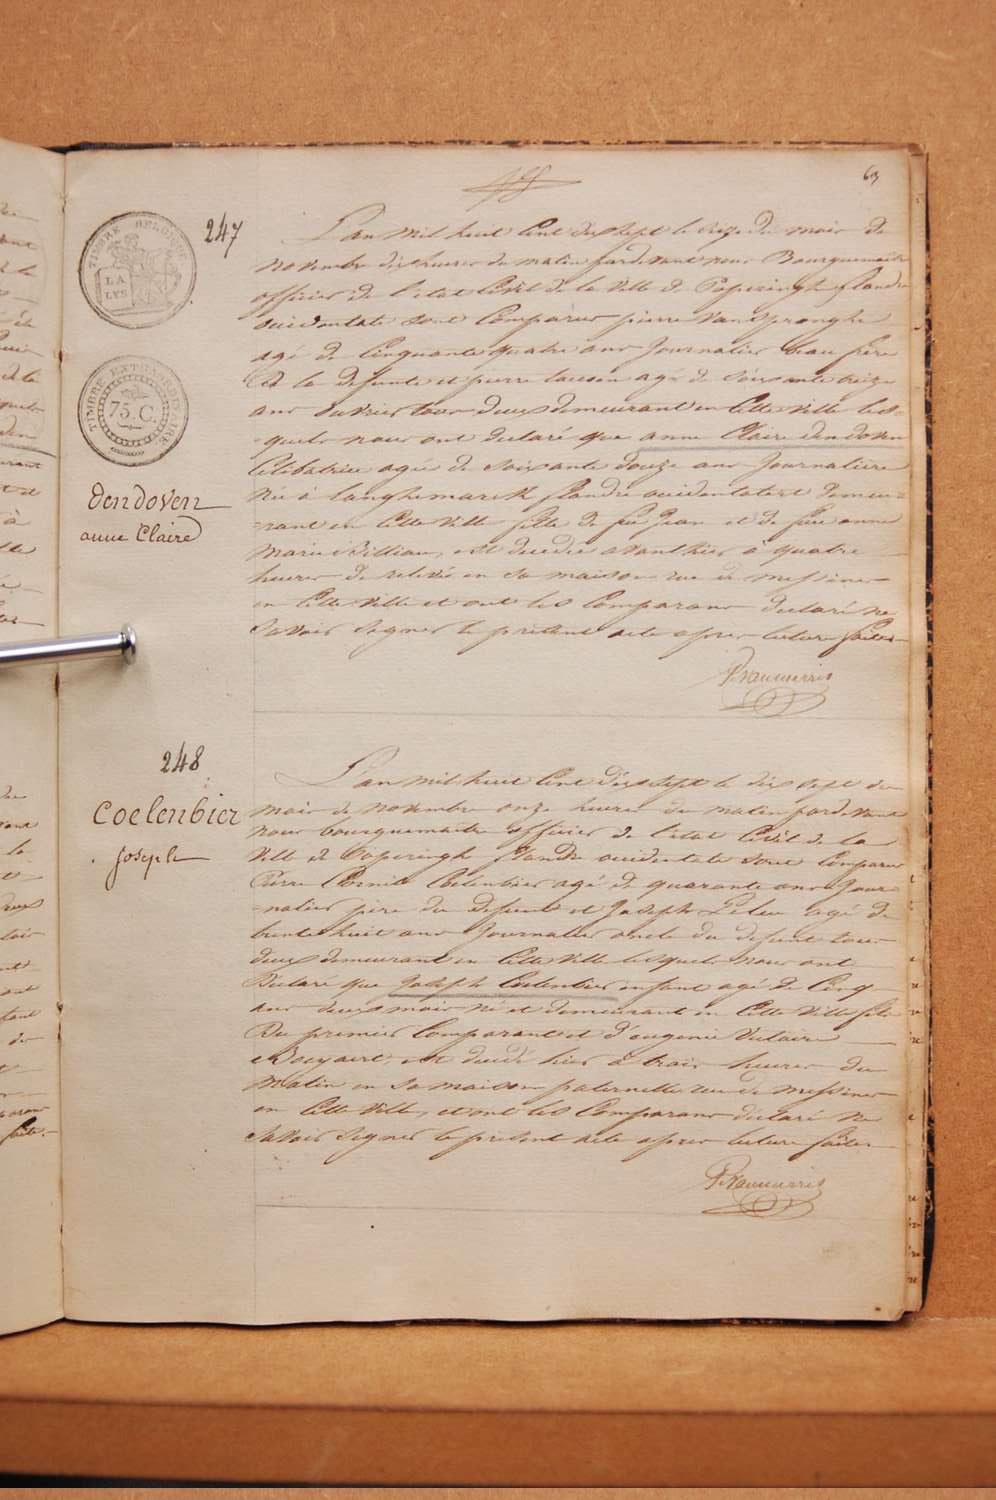 63
TIMBRE BELGIQUE
LA LYS
TIMBRE EXTRAORDINAIRE
75. C.
247
Dendoven
anne Claire
L'an mil huit Cent dixsept le seize du mois de
novembre dix heures du matin pardevant nous Bourguemaitre
officier de l'etat Civil de la ville de Poperinghe flandre
occidentale sont Comparus pierre Vanspranghe
agé de Cinquante quatre ans journalier beau frère
de la defunte et pierre agé de soixante treize
ans ouvrier tous deux demeurant en Cette ville les-
-quels nous ont declaré que anne Claire dendoven
Celibatrice agée de soixante douze ans journalière
née à langhemarck flandre occidentale et demeu-
-rant en Cette ville fille de feu jean et de feue anne
marie Villiaen, est decedée avanthier à quatre
heures de relevée en sa maison rue de messines
en Cette ville et ont les Comparans declaré ne
savoir signer le présent acte apres lecture faite.
248
Coelenbier
joseph
L'an mil huit Cent dixsept le dix sept du
mois de novembre onze heures du matin pardevant
nous bourguemaitre officier de l'etat Civil de la
ville de Poperinghe flandre occidentale sont Comparus
Pierre Cornil Coelenbier agé de quarante ans jour-
-nalier père du defunt et joseph agé de
trente huit ans journalier oncle du defunt tous
deux demeurant en Cette ville lesquels nous ont
declaré que joseph Coelenbier enfant agé de Cinq
ans deux mois né et demeurant en Cette ville fils
du premier Comparant et d'eugenie
est decedé hier à trois heures du
matin en sa maison paternelle rue de messines
en Cette ville, et ont les Comparans declaré ne
savoir signer le présent acte apres lecture faite